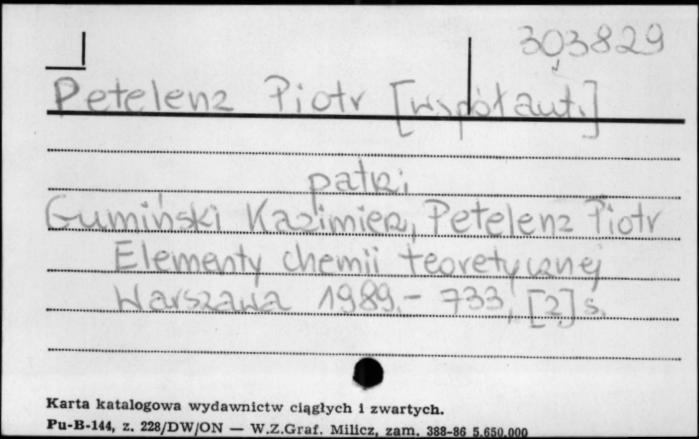 303829
Petelenz Piotr [współaut.]
patrz
Gumiński Kazimierz, Petelenz Piotr
Elementy chemii teoretycznej
Warszawa 1989.- 733, [2] s.
Karta katalogowa wydawnictw ciągłych i zwartych.
Pu-B-144, z. 228/DW/ON — W.Z.Graf. Milicz, zam. 388-86 5.650.000